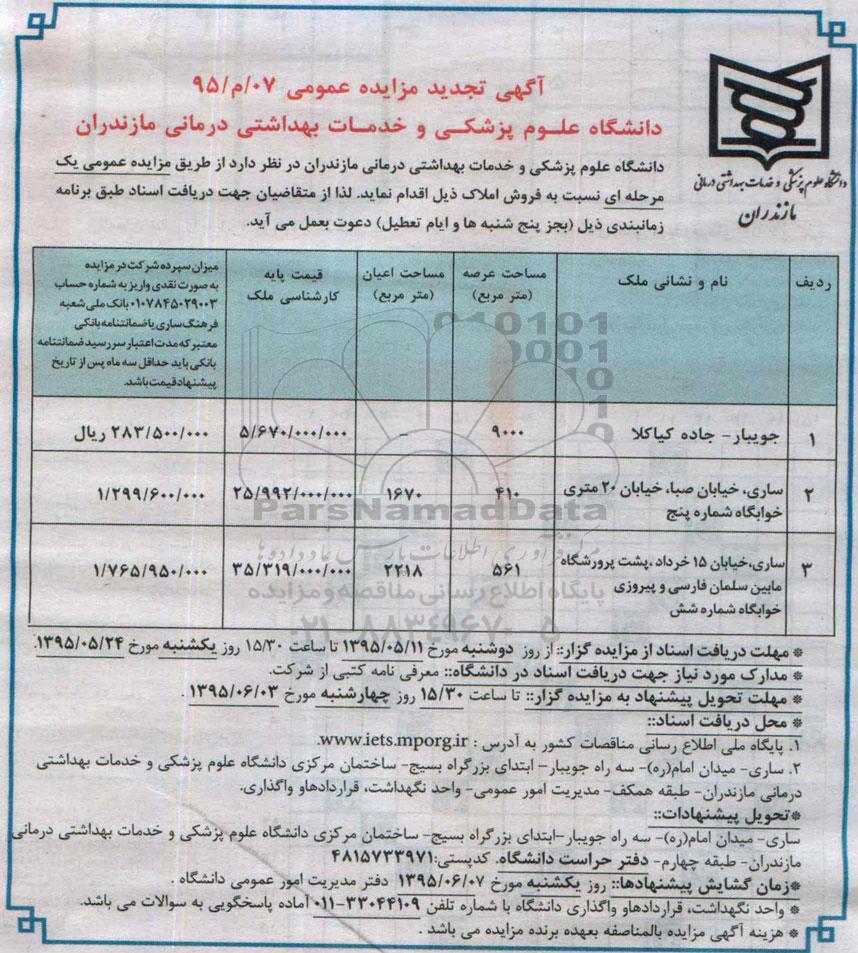 آگهی تجدید مزایده عمومی ۰۷/م/۹۵
دانشگاه علـوم پزشکـی و خدمـات بهداشتی درمانی مازندران
دانشگاه علوم پزشکی و خدمات بهداشتی درمانی
مازندران
دانشگاه علوم پزشکی و خدمات بهداشتی درمانی مازندران در نظر دارد از طریق مزایده عمومی یک
مرحله ای نسبت به فروش املاک ذیل اقدام نماید. لذا از متقاضیان جهت دریافت اسناد طبق برنامه
زمانبندی ذیل (بجز پنج شنبه ها و ایام تعطیل) دعوت بعمل می آید.
ردیف
نام و نشانی ملک
مساحت عرصه
(متر مربع)
مساحت اعیان
(متر مربع)
قیمت پایه
کارشناسی ملک
میزان سپرده شرکت در مزایده
به صورت نقدی واریز به شماره حساب
۰۱۰۷۸۴۵۰۲۹۰۰۳ بانک ملی شعبه
فرهنگ ساری یا ضمانتنامه بانکی
معتبر که مدت اعتبار سررسید ضمانتنامه
بانکی باید حداقل سه ماه پس از تاریخ
پیشنهاد قیمت باشد.
۱ جویبار- جاده کیاکلا ۹۰۰۰ - ۵/۶۷۰/۰۰۰/۰۰۰ ۲۸۳/۵۰۰/۰۰۰ ریال
۲ ساری، خیابان صبا، خیابان ۲۰ متری ۴۱۰ ۱۶۷۰ ۲۵/۹۹۲/۰۰۰/۰۰۰ ۱/۲۹۹/۶۰۰/۰۰۰
خوابگاه شماره پنج
۳ ساری،خیابان ۱۵ خرداد ،پشت پرورشگاه ۵۶۱ ۲۲۱۸ ۳۵/۳۱۹/۰۰۰/۰۰۰ ۱/۷۶۵/۹۵۰/۰۰۰
مابین سلمان فارسی و پیروزی
خوابگاه شماره شش
ParsNamadData
پایگاه اطلاع رسانی مناقصه و مزایده
۰۲۱-۸۸۳۴۹۶۷۰-۵
* مهلت دریافت اسناد از مزایده گزار:: از روز دوشنبه مورخ ۱۳۹۵/۰۵/۱۱ تا ساعت ۱۵/۳۰ روز یکشنبه مورخ ۱۳۹۵/۰۵/۲۴.
* مدارک مورد نیاز جهت دریافت اسناد در دانشگاه:: معرفی نامه کتبی از شرکت.
* مهلت تحویل پیشنهاد به مزایده گزار:: تا ساعت ۱۵/۳۰ روز چهارشنبه مورخ ۱۳۹۵/۰۶/۰۳ .
* محل دریافت اسناد::
۱. پایگاه ملی اطلاع رسانی مناقصات کشور به آدرس : www.iets.mporg.ir.
۲. ساری- میدان امام(ره)- سه راه جویبار- ابتدای بزرگراه بسیج- ساختمان مرکزی دانشگاه علوم پزشکی و خدمات بهداشتی
درمانی مازندران- طبقه همکف- مدیریت امور عمومی- واحد نگهداشت، قراردادهاو واگذاری.
*تحویل پیشنهادات::
ساری- میدان امام(ره)- سه راه جویبار-ابتدای بزرگراه بسیج- ساختمان مرکزی دانشگاه علوم پزشکی و خدمات بهداشتی درمانی
مازندران- طبقه چهارم- دفتر حراست دانشگاه. کدپستی:۴۸۱۵۷۳۳۹۷۱
*زمان گشایش پیشنهادها:: روز یکشنبه مورخ ۱۳۹۵/۰۶/۰۷ دفتر مدیریت امور عمومی دانشگاه .
* واحد نگهداشت، قراردادهاو واگذاری دانشگاه با شماره تلفن ۳۳۰۴۴۱۰۹-۰۱۱ آماده پاسخگویی به سوالات می باشد.
* هزینه آگهی مزایده بالمناصفه بعهده برنده مزایده می باشد .